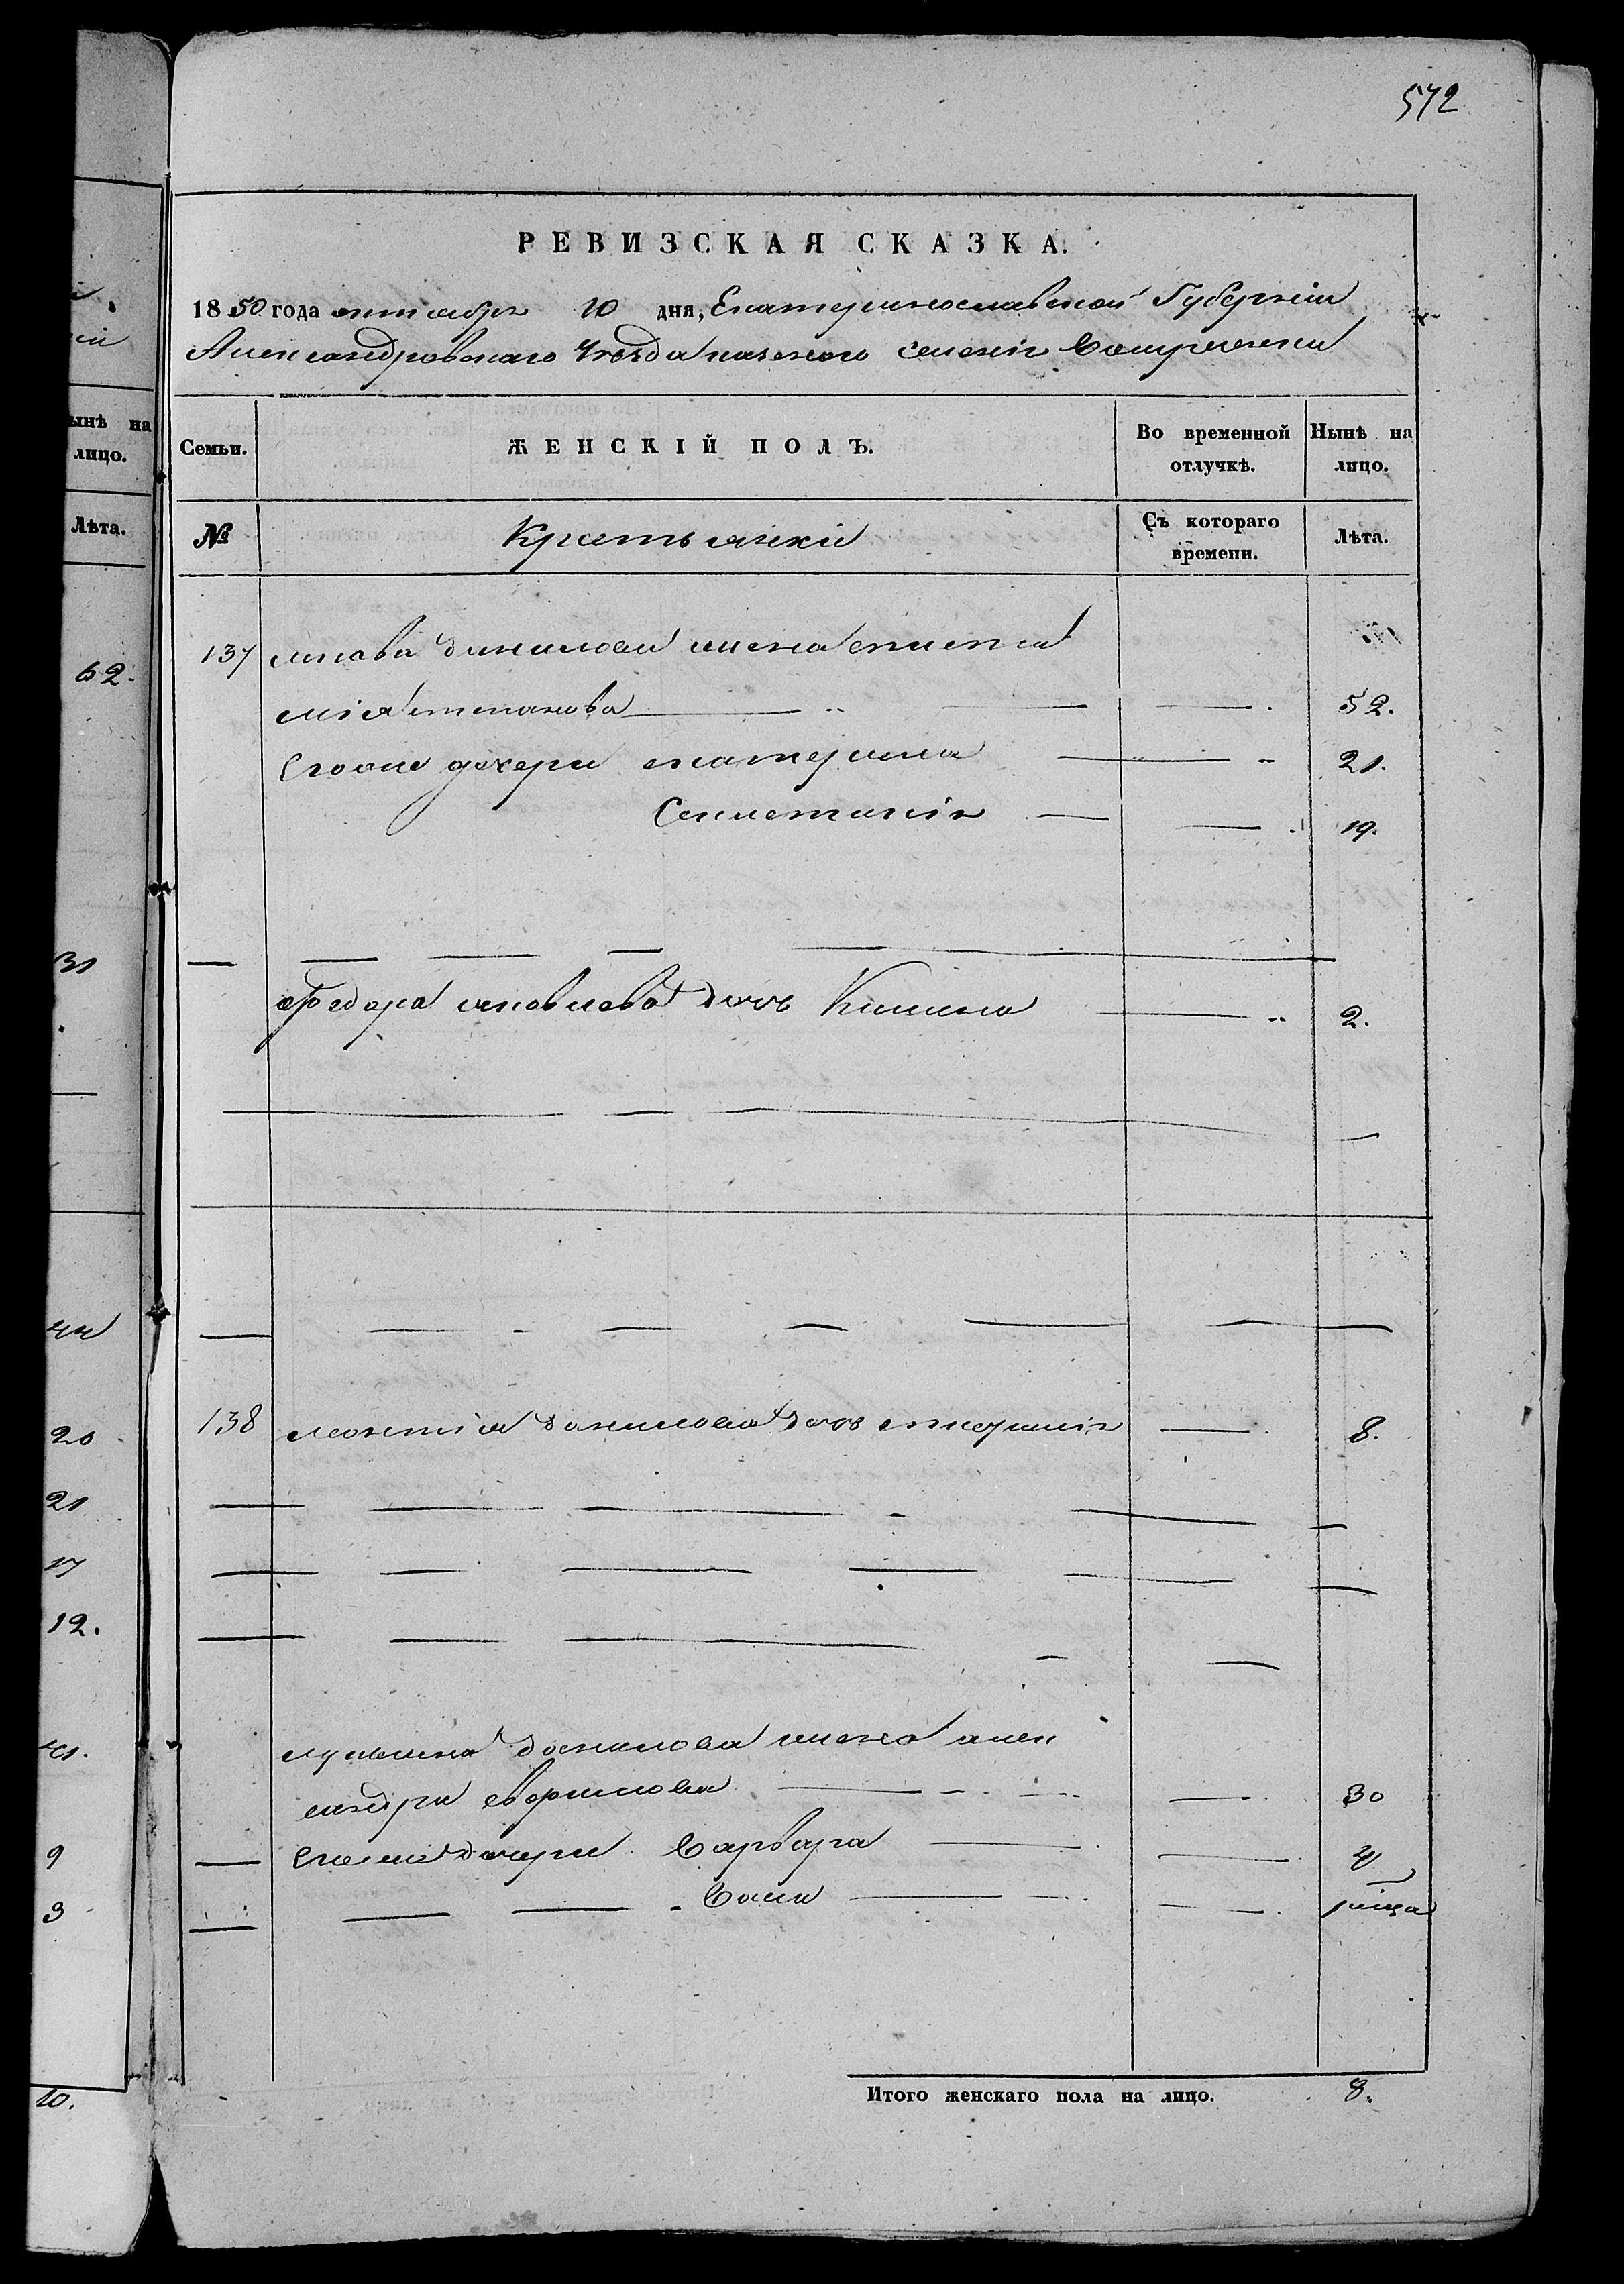 572
РЕВИЗСКАЯ СКАЗКА.
1850 года октября 10 дня, Екатеринославской Губернии
Александровскаго уезда казенного селения Воскресенки
Семьи. ЖЕНСКІЙ ПОЛЪ. Во временной отлучкѣ. Нынѣ на лицо.
№ Крестьянки Съ котораго времени. Лѣта.
137 Данилова жена
Степанова 52.
Его дочери Катерина 21.
19.
Федора Яковлева дочь 2.
138 Леонтия Данилова дочь 8.
Лукьяна Данилова жена алек
сандра ефимова 30
Его дочери Варвара 4
Итого женскаго пола на лицо. 8.
ынѣ на
лицо.
Лѣта.
62.
31
44
20
21
17
12.
41.
9
3
10.